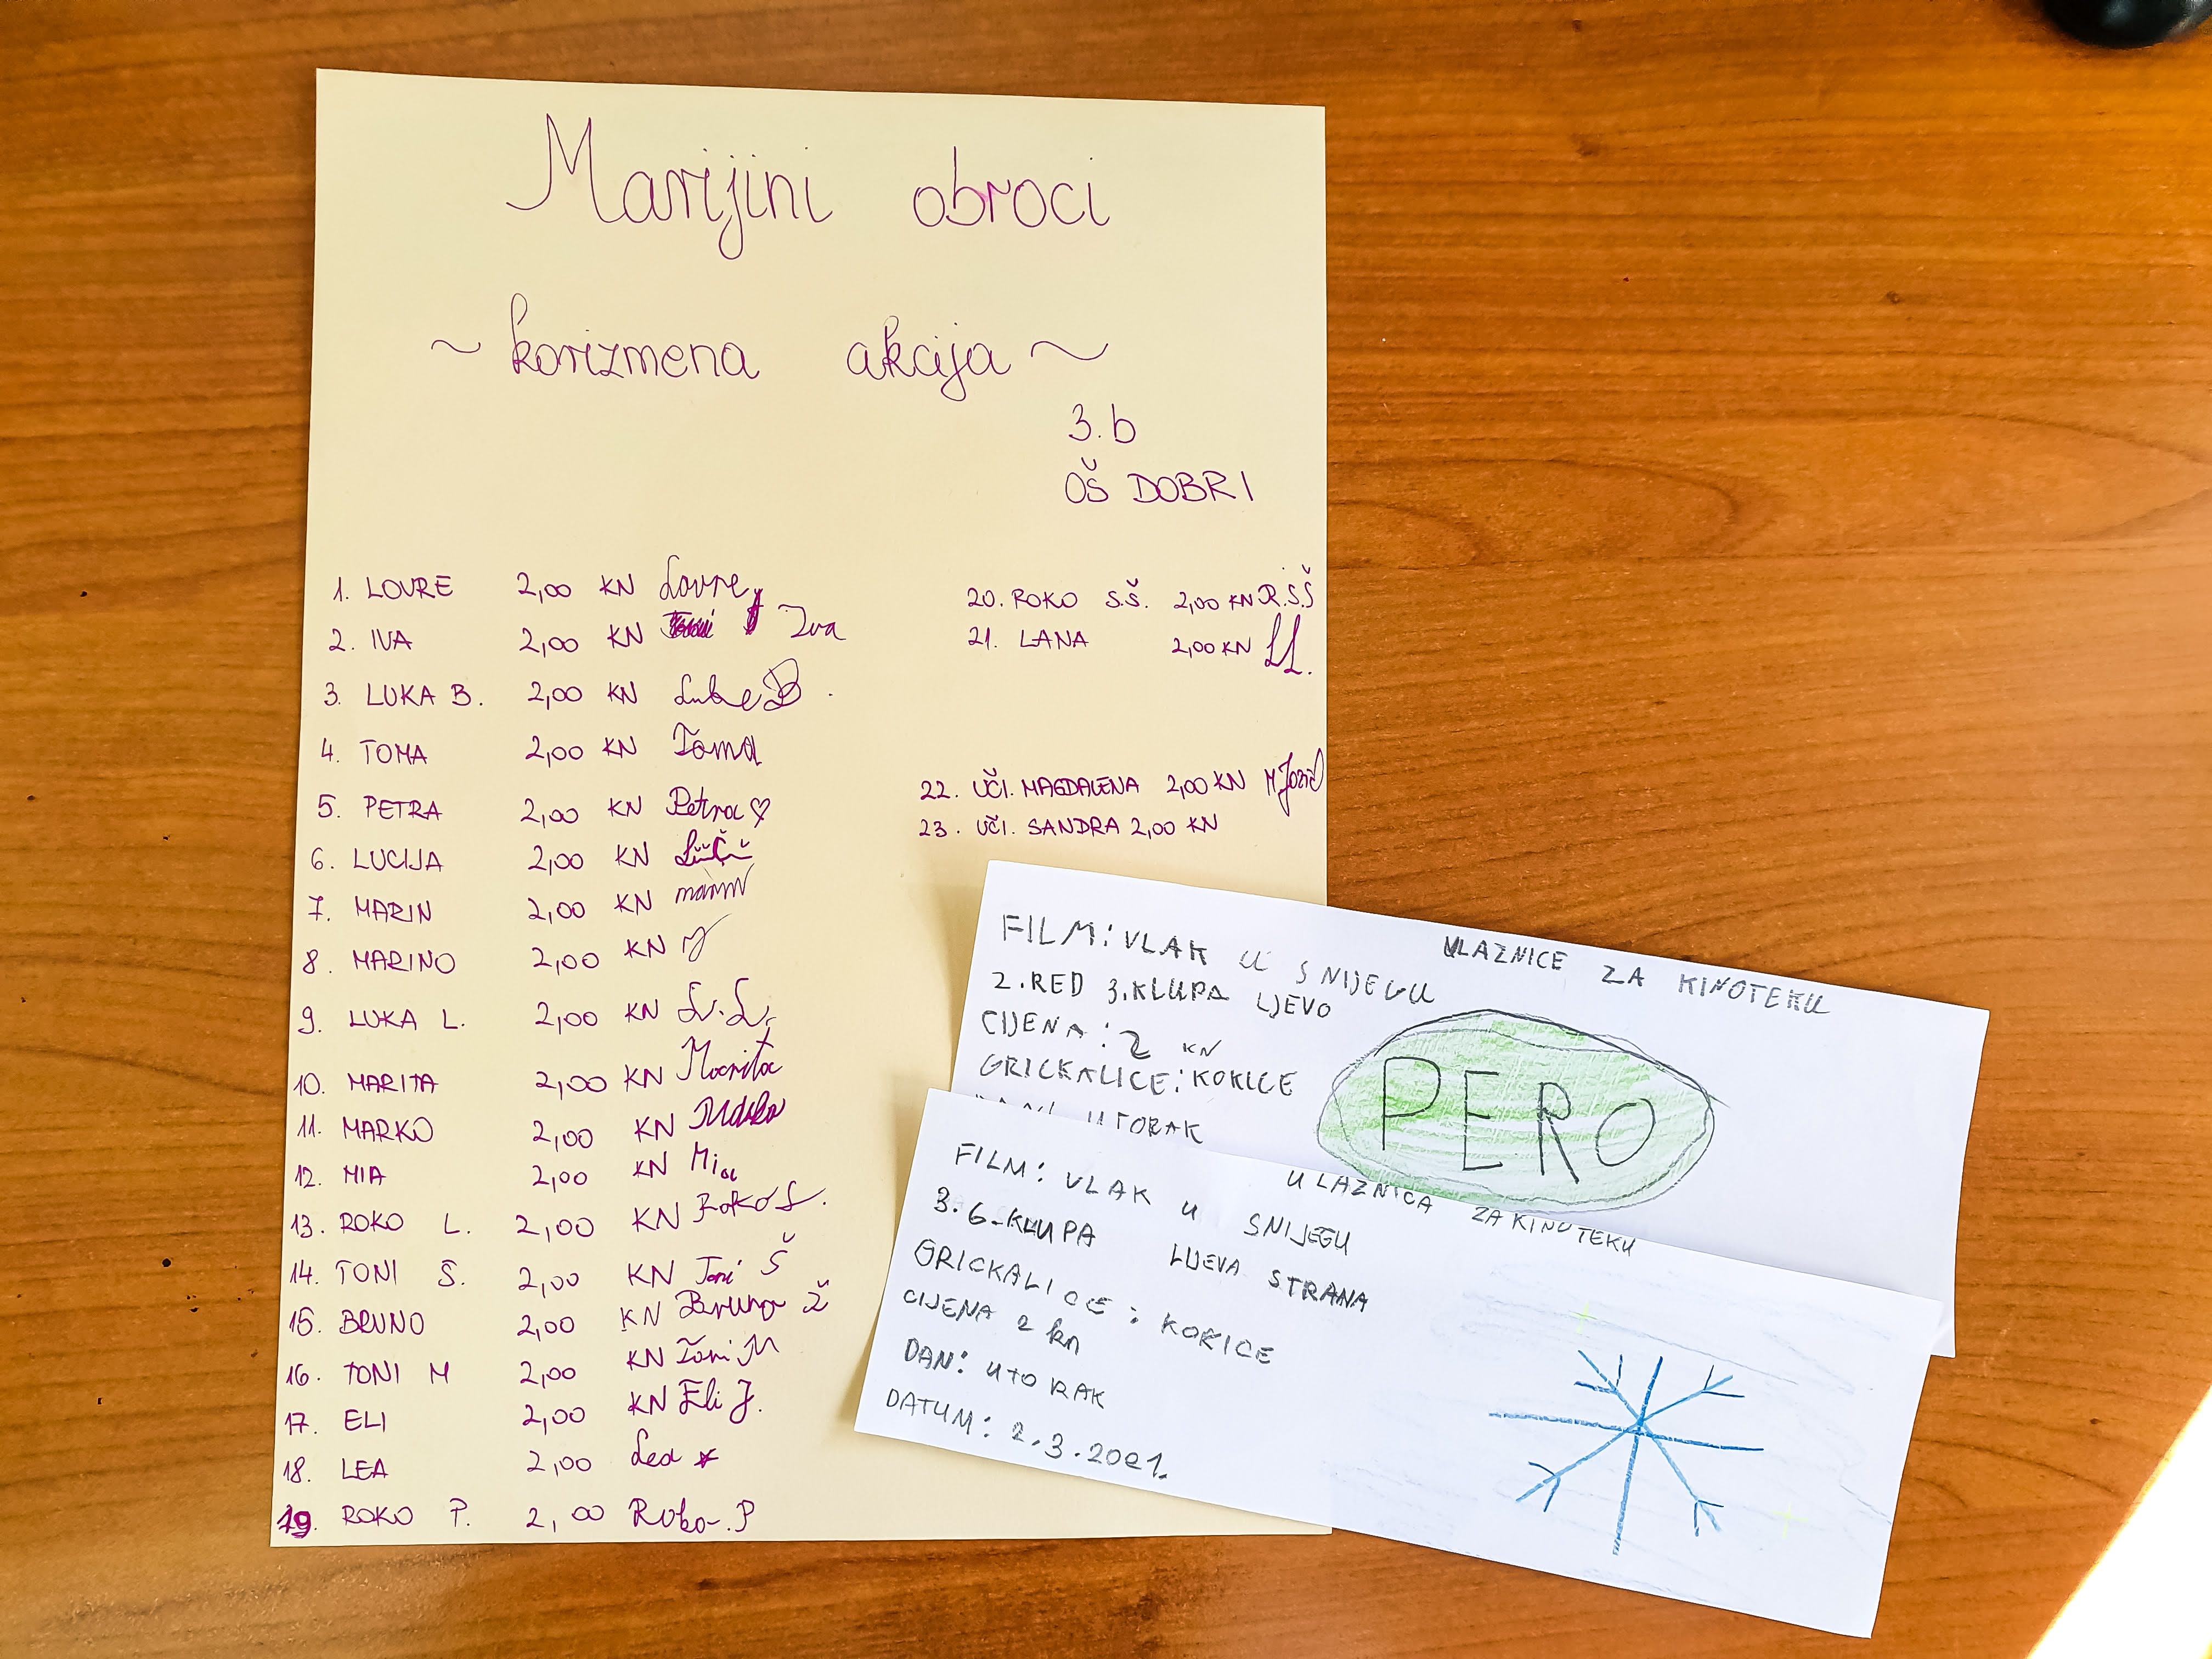 Marijini obroci
~ korizmena akcija ~
3.b
OŠ DOBRI
1. LOVRE 2,00 KN Lovre
2. IVA 2,00 KN Iva
3. LUKA B. 2,00 KN Luka B.
4. TOMA 2,00 KN Toma
5. PETRA 2,00 KN Petra ♡
6. LUCIJA 2,00 KN
7. MARIN 2,00 KN marin
8. MARINO 2,00 KN
9. LUKA L. 2,00 KN L.L.
10. MARITA 2,00 KN Marita
11. MARKO 2,00 KN Marko
12. MIA 2,00 KN Mia
13. ROKO L. 2,00 KN Roko L.
14. TONI Š. 2,00 KN Toni Š
15. BRUNO 2,00 KN Bruno Ž
16. TONI M 2,00 KN Toni M
17. ELI 2,00 KN Eli J.
18. LEA 2,00 Lea
19. ROKO P. 2,00 Roko P
20. ROKO S.Š. 2,00 KN R.S.Š
21. LANA 2,00 KN LL.
22. UČI. MAGDALENA 2,00 KN M Jozić
23. UČI. SANDRA 2,00 KN
ULAZNICE ZA KINOTEKU
FILM: VLAK U SNIJEGU
2. RED 3. KLUPA LJEVO
CIJENA: 2 KN
GRICKALICE: KOKICE
UTORAK
PERO
ULAZNICA ZA KINOTEKU
FILM: VLAK U SNIJEGU
3. 6-KLUPA LIJEVA STRANA
GRICKALICE: KOKICE
CIJENA 2 kn
DAN: UTORAK
DATUM: 2.3.2021.